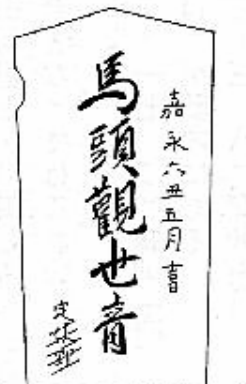 嘉永六丑五月吉日
馬頭觀世音